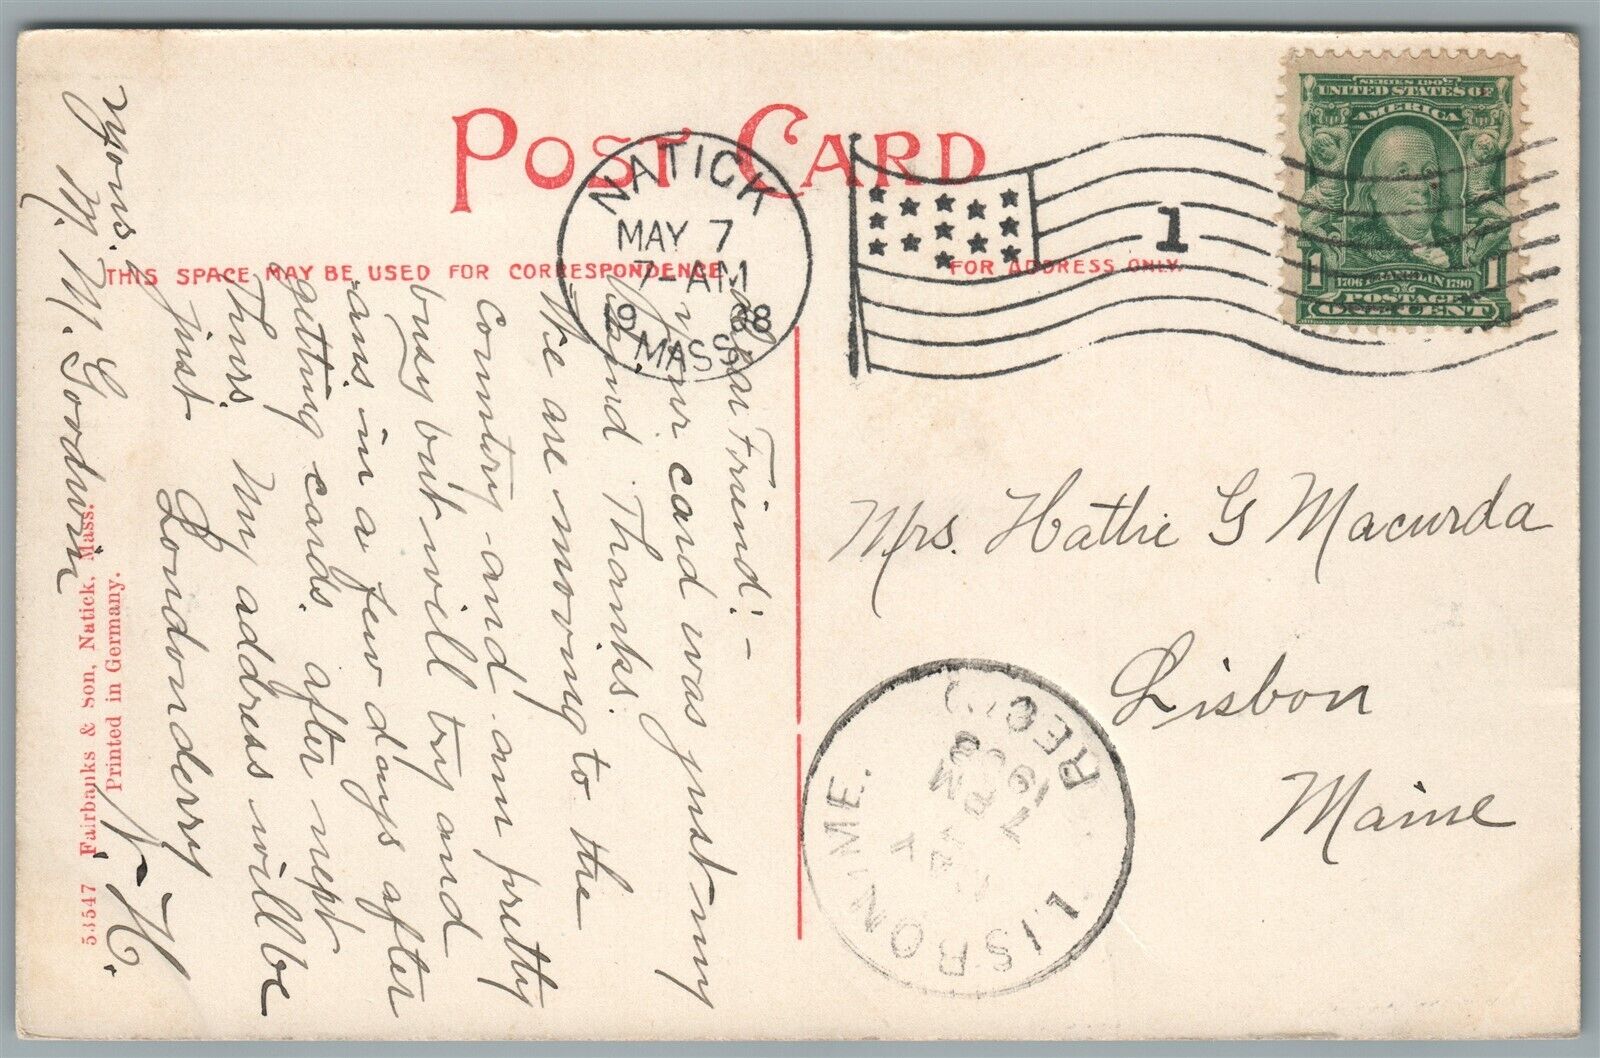 POST CARD
THIS SPACE MAY BE USED FOR CORRESPONDENCE.
FOR ADDRESS ONLY.
NATICK
MAY 7
7-AM
MASS.
1
SERIES 1902
UNITED STATES OF
AMERICA
1 FRANKLIN 1
1706 1790
POSTAGE
ONE CENT
Dear Friend! -
Your card was just my
kind. Thanks.
We are moving to the
Country and am pretty
busy but will try and
ans in a few days after
getting cards. after next
Thurs. my address will be
just Londonderry
N. H.
yours.
M. M. Goodwin
Mrs. Hattie G Macurda
Lisbon
Maine
LISBON, ME.
REC'D
7
1908
53547 Fairbanks & Son, Natick, Mass.
Printed in Germany.